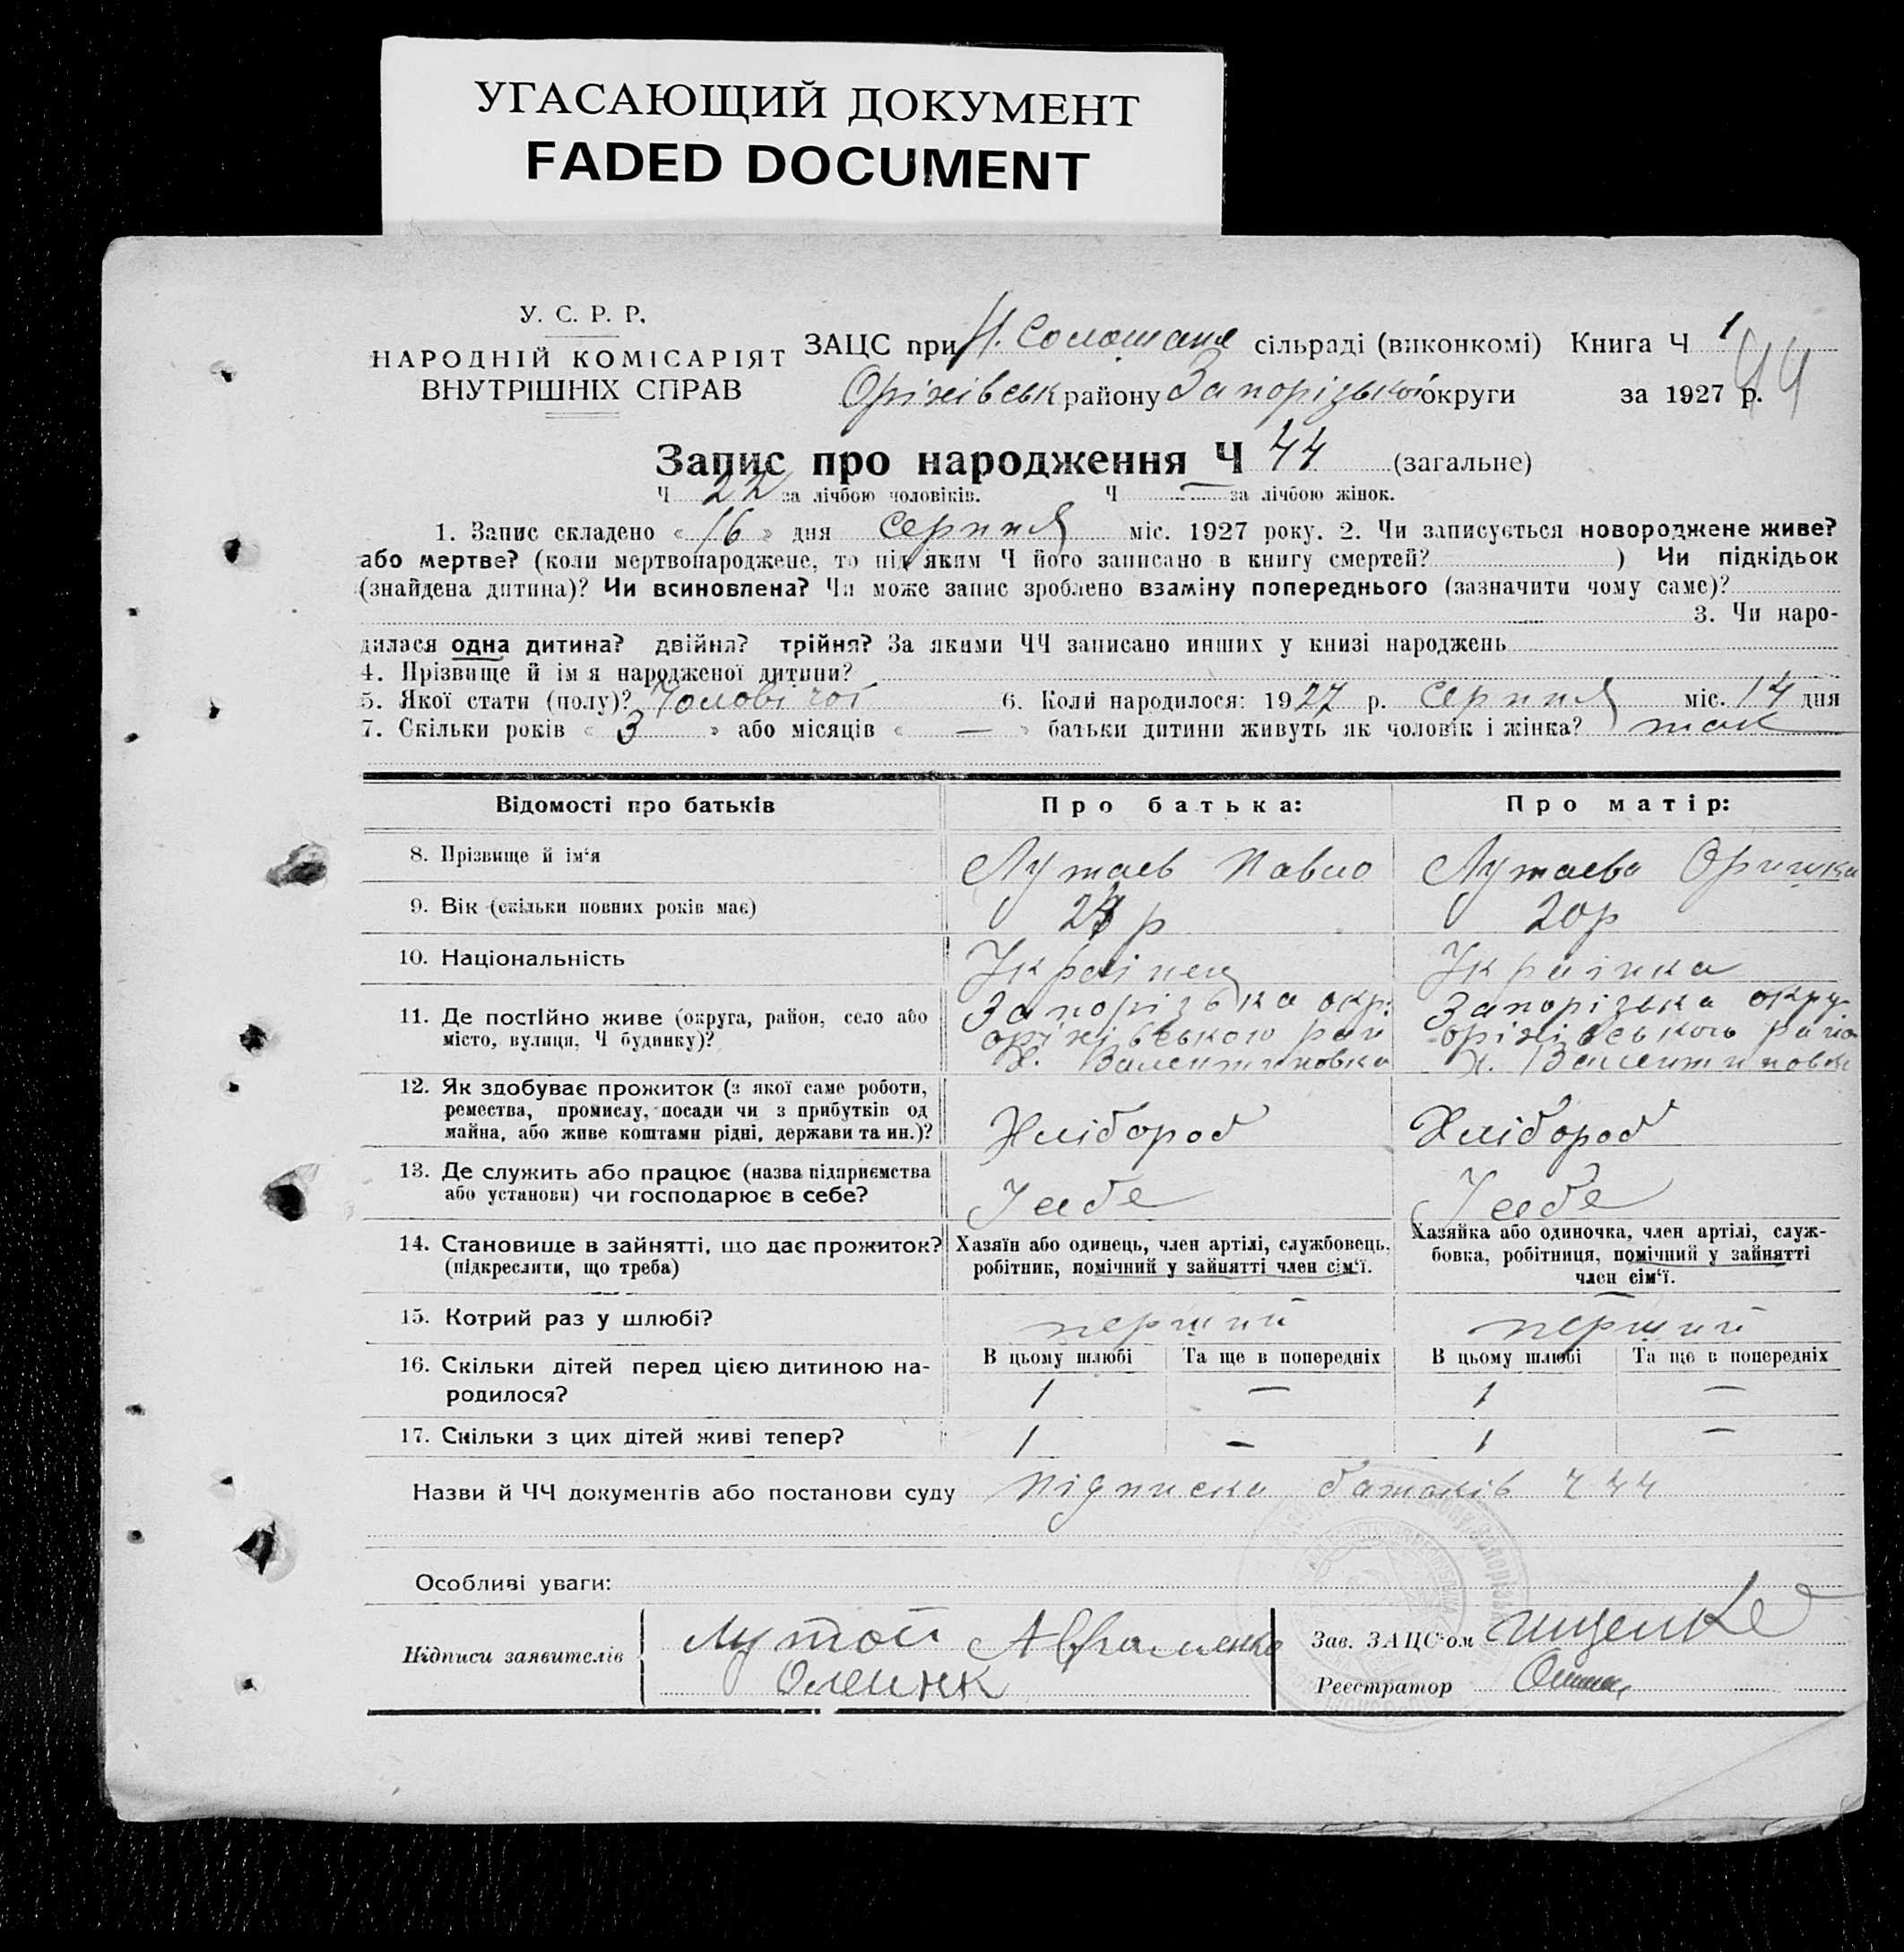 УГАСАЮЩИЙ ДОКУМЕНТ
FADED DOCUMENT
У. С. Р. Р.
НАРОДНІЙ КОМІСАРІЯТ
ВНУТРІШНІХ СПРАВ
ЗАЦС при Н. сільраді (виконкомі) Книга Ч 1
44
Оріхівськ району Запорізької округи за 1927 р.
Запис про народження Ч 44 (загальне)
Ч 22 за лічбою чоловіків. Ч — за лічбою жінок.
1. Запис складено « 16 » дня Серпня міс. 1927 року. 2. Чи записується новороджене живе?
або мертве? (коли мертвонароджене, то під яким Ч його записано в книгу смертей? ) Чи підкідьок
(знайдена дитина)? Чи всиновлена? Чи може запис зроблено взаміну попереднього (зазначити чому саме)?
3. Чи наро-
дилася одна дитина? двійня? трійня? За якими ЧЧ записано инших у книзі народжень
4. Прізвище й ім я народженої дитини?
5. Якої стати (полу)? Чоловічої 6. Коли народилося: 1927 р. Серпня міс. 14 дня
7. Скільки років « 3 » або місяців « — » батьки дитини живуть як чоловік і жінка? так
Відомості про батьків Про батька: Про матір:
8. Прізвище й ім‘я Лутаев Павло Лутаева Оришка
9. Вік (скільки повних років має) р 20р
10. Національність Українец Українка
11. Де постійно живе (округа, район, село або
місто, вулиця, Ч будинку)?
Запорізька окр.
оріхівського рай
Х. Валентиновка
Запорізька окру-
оріхівського райо
Х. Валентиновка
12. Як здобуває прожиток (з якої саме роботи,
ремества, промислу, посади чи з прибутків од
майна, або живе коштами рідні, держави та ин.)?
Хлібороб Хлібороб
13. Де служить або працює (назва підприємства
або установи) чи господарює в себе?
У себе У себе
14. Становище в зайнятті, що дає прожиток?
(підкреслити, що треба)
Хазяїн або одинець, член артілі, службовець,
робітник, помічний у зайнятті член сім‘ї.
Хазяйка або одиночка, член артілі, служ-
бовка, робітниця, помічний у зайнятті
член сім‘ї.
15. Котрий раз у шлюбі? перший перший
16. Скільки дітей перед цією дитиною на-
родилося?
В цьому шлюбі Та ще в попередніх В цьому шлюбі Та ще в попередніх
1 — 1 —
17. Скільки з цих дітей живі тепер? 1 — 1 —
Назви й ЧЧ документів або постанови суду Підписка батьків Ч 44
Особливі уваги:
Підписи заявителів Лутой Авраменко
Олейнк
Зав. ЗАЦС‘ом
Реєстратор